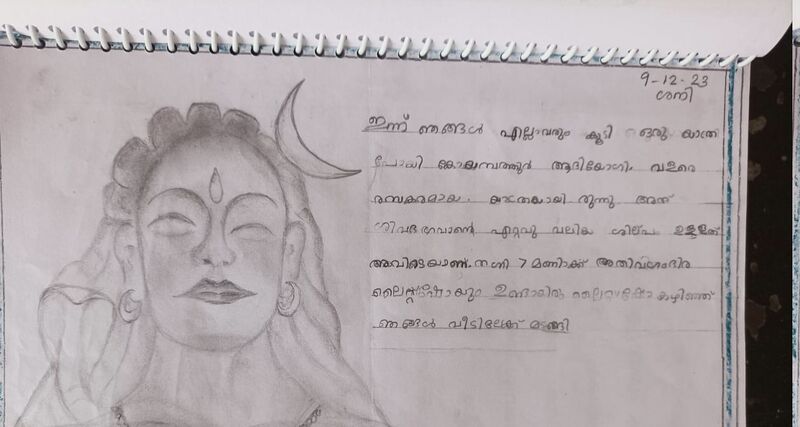 9-12-23
ശനി
ഇന്ന് ഞങ്ങൾ എല്ലാവരും കൂടി ഒരു യാത്ര
പോയി കോയമ്പത്തൂർ ആദിയോഗി. വളരെ
രസകരമായ യാത്രയായി രുന്നു അത്
ശിവഭഗവാന്റെ ഏറ്റവു വലിയ ശില്പം ഉള്ളത്
അവിടെയാണ്. 7 മണിക്ക് അതിവശംദിര
ലൈറ്റ്ഷോയും ഉണ്ടായിരു ലൈറ്റ്ഷോ കഴിഞ്ഞ്
ഞങ്ങൾ വീട്ടിലേക്ക് മടങ്ങി